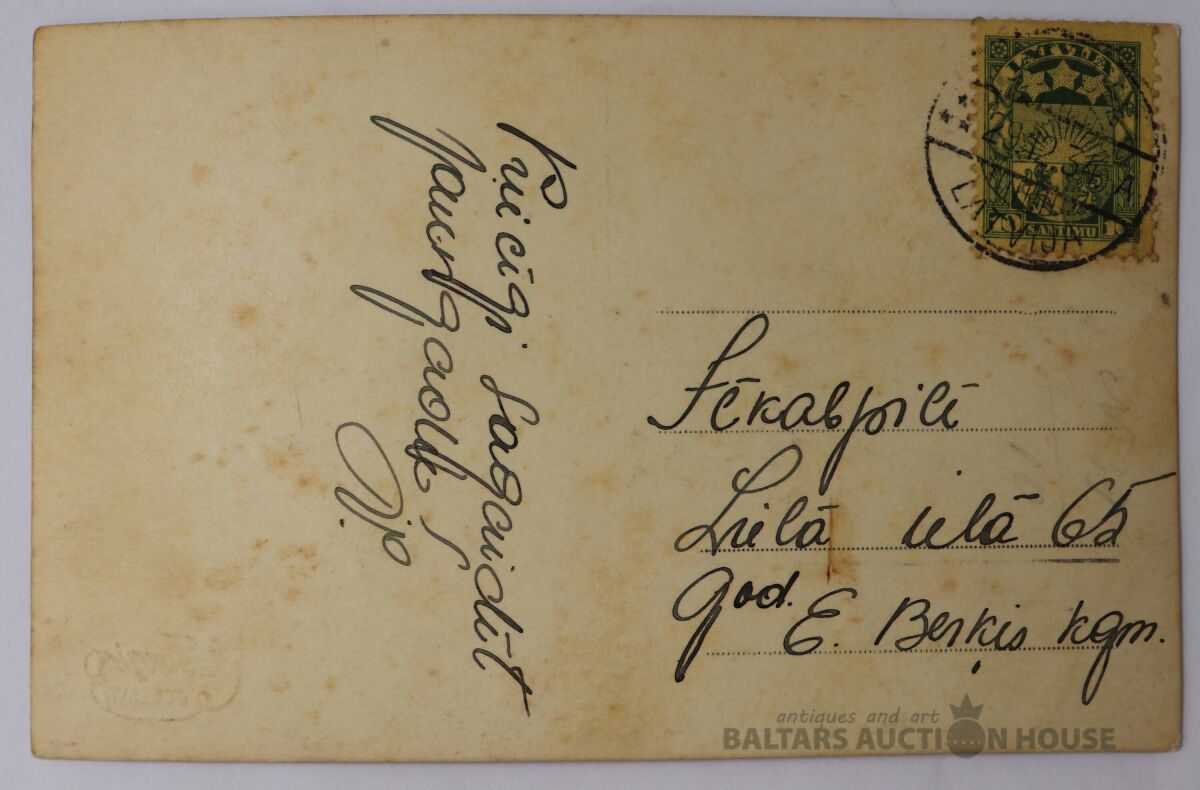 Pricīgi sagaidīt
Jaungadu
Jēkabpilī
Lielā ielā 65
God. E. Berķis kgm.
LATVIJA
10 SANTIMU 10
LATVIJA
antiques and art
BALTARS AUCTION HOUSE